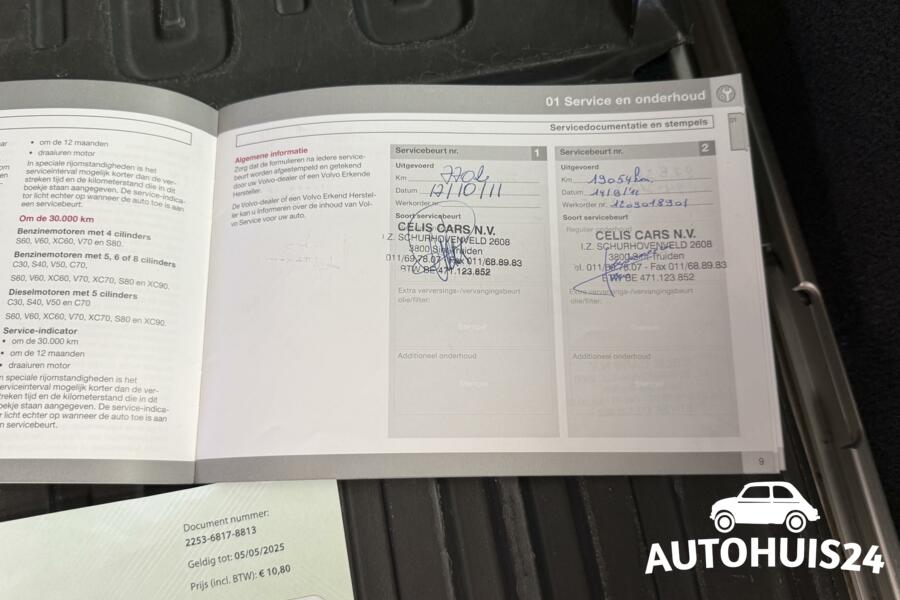 01 Service en onderhoud
Servicedocumentatie en stempels
01
• om de 12 maanden
• draaiuren motor
In speciale rijomstandigheden is het
serviceinterval mogelijk korter dan de ver-
streken tijd en de kilometerstand die in dit
boekje staan aangegeven. De service-indica-
tor licht echter op wanneer de auto toe is aan
een servicebeurt.
Om de 30.000 km
Benzinemotoren met 4 cilinders
S60, V60, XC60, V70 en S80.
Benzinemotoren met 5, 6 of 8 cilinders
C30, S40, V50, C70,
S60, V60, XC60, V70, XC70, S80 en XC90.
Dieselmotoren met 5 cilinders
C30, S40, V50 en C70
S60, V60, XC60, V70, XC70, S80 en XC90.
Service-indicator
• om de 30.000 km
• om de 12 maanden
• draaiuren motor
n speciale rijomstandigheden is het
serviceinterval mogelijk korter dan de ver-
streken tijd en de kilometerstand die in dit
boekje staan aangegeven. De service-indica-
r licht echter op wanneer de auto toe is aan
n servicebeurt.
Algemene informatie
Zorg dat de formulieren na iedere service-
beurt worden afgestempeld en getekend
door uw Volvo-dealer of een Volvo Erkende
Hersteller.
De Volvo-dealer of een Volvo Erkend Herstel-
ler kan u informeren over de inhoud van Vol-
vo Service voor uw auto.
Servicebeurt nr. 1
Uitgevoerd
Km
Datum 17/10/11
Werkorder nr.
Soort servicebeurt
CELIS CARS N.V.
I.Z. SCHURHOVENVELD 2608
3800 Sint-Truiden
011/69.78.07 - Fax 011/68.89.83
BTW BE 471.123.852
Extra verversings-/vervangingsbeurt
olie/filter:
Stempel
Additioneel onderhoud
Stempel
Servicebeurt nr. 2
Uitgevoerd
Km 19054 km
Datum
Werkorder nr.
Soort servicebeurt
Regulier onderhoud
CELIS CARS N.V.
I.Z. SCHURHOVENVELD 2608
3800 Sint-Truiden
el. 011/69.78.07 - Fax 011/68.89.83
BTW BE 471.123.852
Extra verversings-/vervangingsbeurt
olie/filter:
Additioneel onderhoud
Stempel
9
Document nummer:
2253-6817-8813
Geldig tot: 05/05/2025
Prijs (incl. BTW): € 10,80
AUTOHUIS24